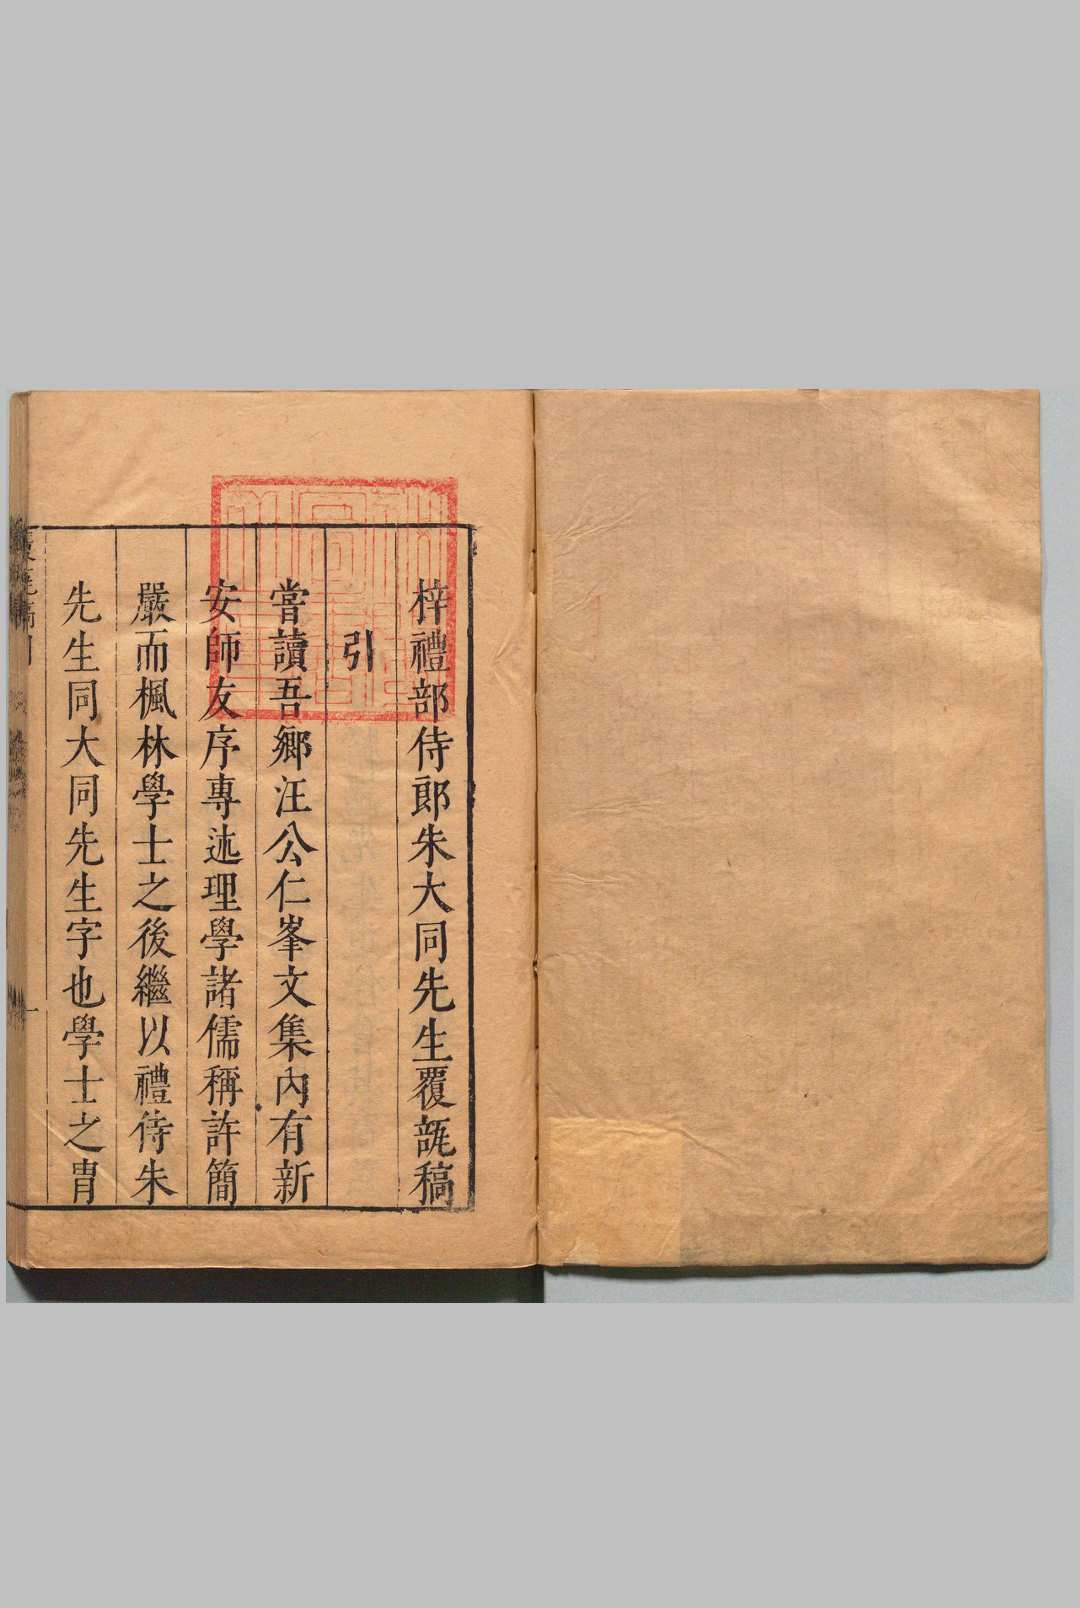 梓禮部侍郎朱大同先生覆瓿稿
引
嘗讀吾鄉汪公仁峯文集內有新
安師友序專述理學諸儒稱許簡
嚴而楓林學士之後繼以禮侍朱
先生同大同先生字也學士之胄